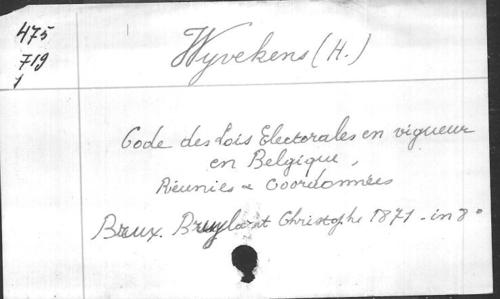 475
719
1
Wyvekens (H.)
Code des lois Electorales en vigueur
en Belgique,
Réunies & Coordonnées
Brux. Bruylant Christophe 1871 - in 8°